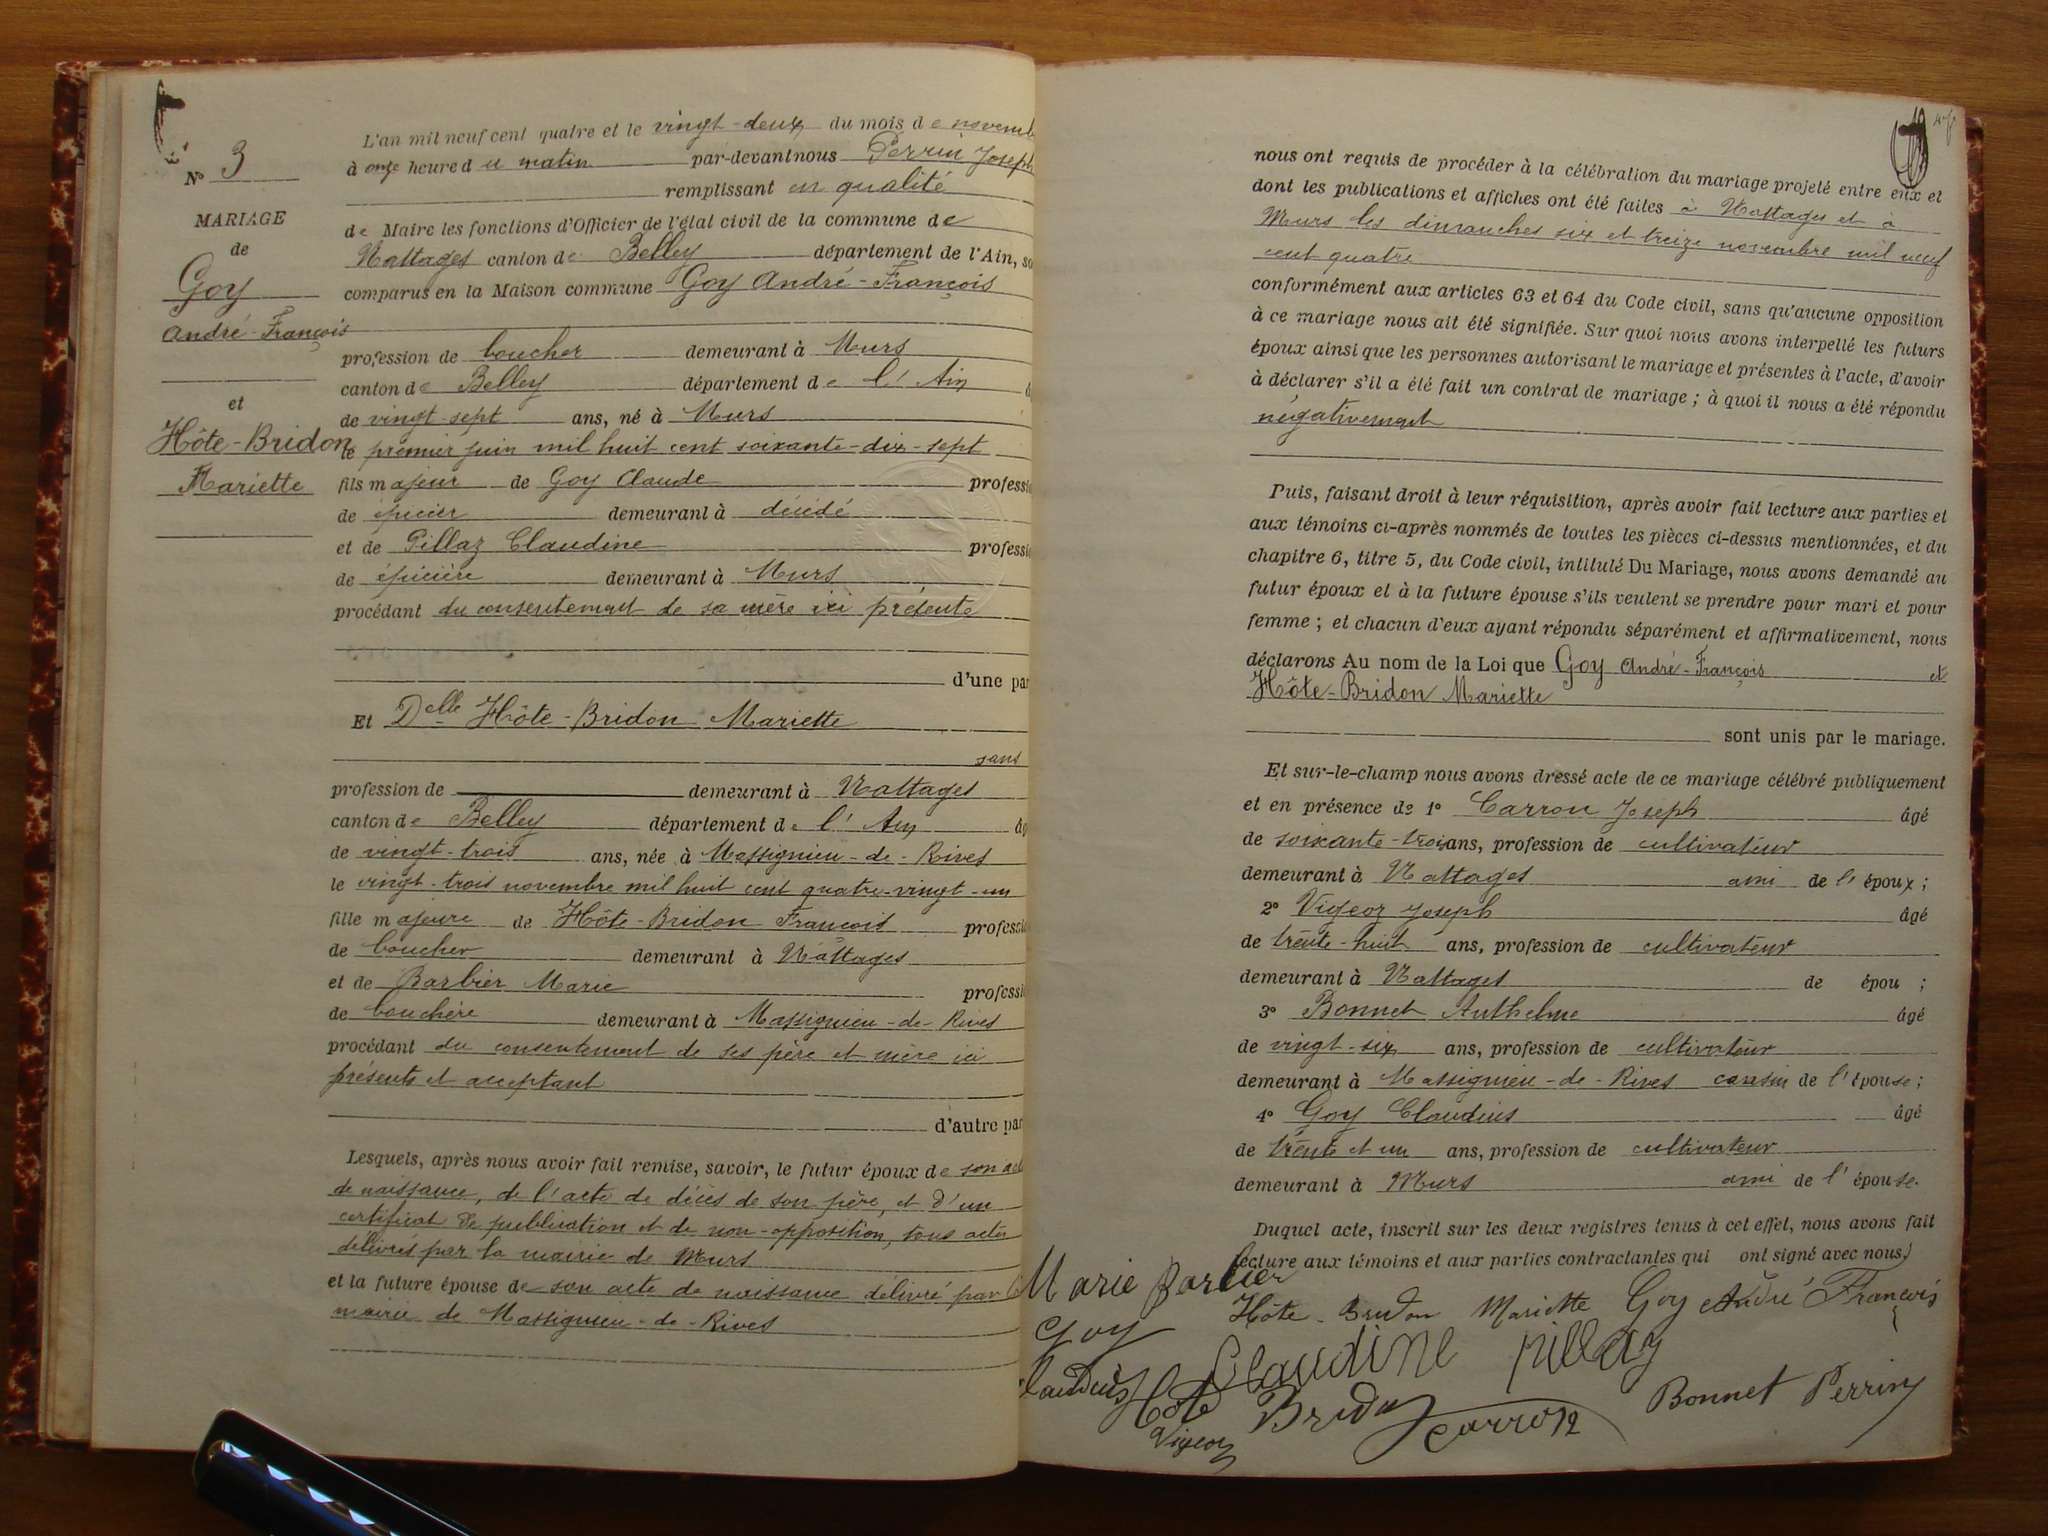 L'an mil neuf cent quatre et le vingt-deux du mois de novemb
à onze heure du matin par-devant nous Perrin Joseph
remplissant en qualité
N° 3
MARIAGE
de
Goy
André-François
et
Hôte-Bridon
Mariette
de Maire les fonctions d'Officier de l'état civil de la commune de
Nattages canton de Belley département de l'Ain, so
comparus en la Maison commune Goy André-François
profession de boucher demeurant à Murs
canton de Belley département de l'Ain
de vingt-sept ans, né à Murs
le premier juin mil huit cent soixante-dix-sept
fils majeur de Goy Claude professi
de épicier demeurant à décédé
et de Pillaz Claudine professi
de épicière demeurant à Murs
procédant du consentement de sa mère ici présente
d'une par
Et Delle Hôte-Bridon Mariette
sans
profession de demeurant à Nattages
canton de Belley département de l'Ain âg
de vingt-trois ans, née à Massignieu-de-Rives
le vingt-trois novembre mil huit cent quatre-vingt-un
fille majeure de Hôte-Bridon François professi
de boucher demeurant à Nattages
et de Barbier Marie professi
de bouchère demeurant à Massignieu-de-Rives
procédant du consentement de ses père et mère ici
présents et acceptant
d'autre par
Lesquels, après nous avoir fait remise, savoir, le futur époux de son acte
de naissance, de l'acte de décès de son père, et d'un
certificat de publication et de non-opposition, tous actes
délivrés par la mairie de Murs
et la future épouse de son acte de naissance délivré par la
mairie de Massignieu-de-Rives
nous ont requis de procéder à la célébration du mariage projeté entre eux et
dont les publications et affiches ont été faites à Nattages et à
Murs les dimanches six et treize novembre mil neuf
cent quatre
conformément aux articles 63 et 64 du Code civil, sans qu'aucune opposition
à ce mariage nous ait été signifiée. Sur quoi nous avons interpellé les futurs
époux ainsi que les personnes autorisant le mariage et présentes à l'acte, d'avoir
à déclarer s'il a été fait un contrat de mariage ; à quoi il nous a été répondu
négativement
Puis, faisant droit à leur réquisition, après avoir fait lecture aux parties et
aux témoins ci-après nommés de toutes les pièces ci-dessus mentionnées, et du
chapitre 6, titre 5, du Code civil, intitulé Du Mariage, nous avons demandé au
futur époux et à la future épouse s'ils veulent se prendre pour mari et pour
femme ; et chacun d'eux ayant répondu séparément et affirmativement, nous
déclarons Au nom de la Loi que Goy André-François et
Hôte-Bridon Mariette
sont unis par le mariage.
Et sur-le-champ nous avons dressé acte de ce mariage célébré publiquement
et en présence de 1° Carron Joseph âgé
de soixante-trois ans, profession de cultivateur
demeurant à Nattages ami de l'époux ;
2° Vigeoz Joseph âgé
de trente-huit ans, profession de cultivateur
demeurant à Nattages de épou ;
3° Bonnet Anthelme âgé
de vingt-six ans, profession de cultivateur
demeurant à Massignieu-de-Rives cousin de l'épouse ;
4° Goy Claudius âgé
de trente et un ans, profession de cultivateur
demeurant à Murs ami de l'épouse.
Duquel acte, inscrit sur les deux registres tenus à cet effet, nous avons fait
lecture aux témoins et aux parties contractantes qui ont signé avec nous
Marie Barbier
Hôte-Bridon Mariette Goy André François
Goy
Claudius
Claudine Pillaz
Hôte Bridon
Carron
Bonnet Perrin
Vigeoz